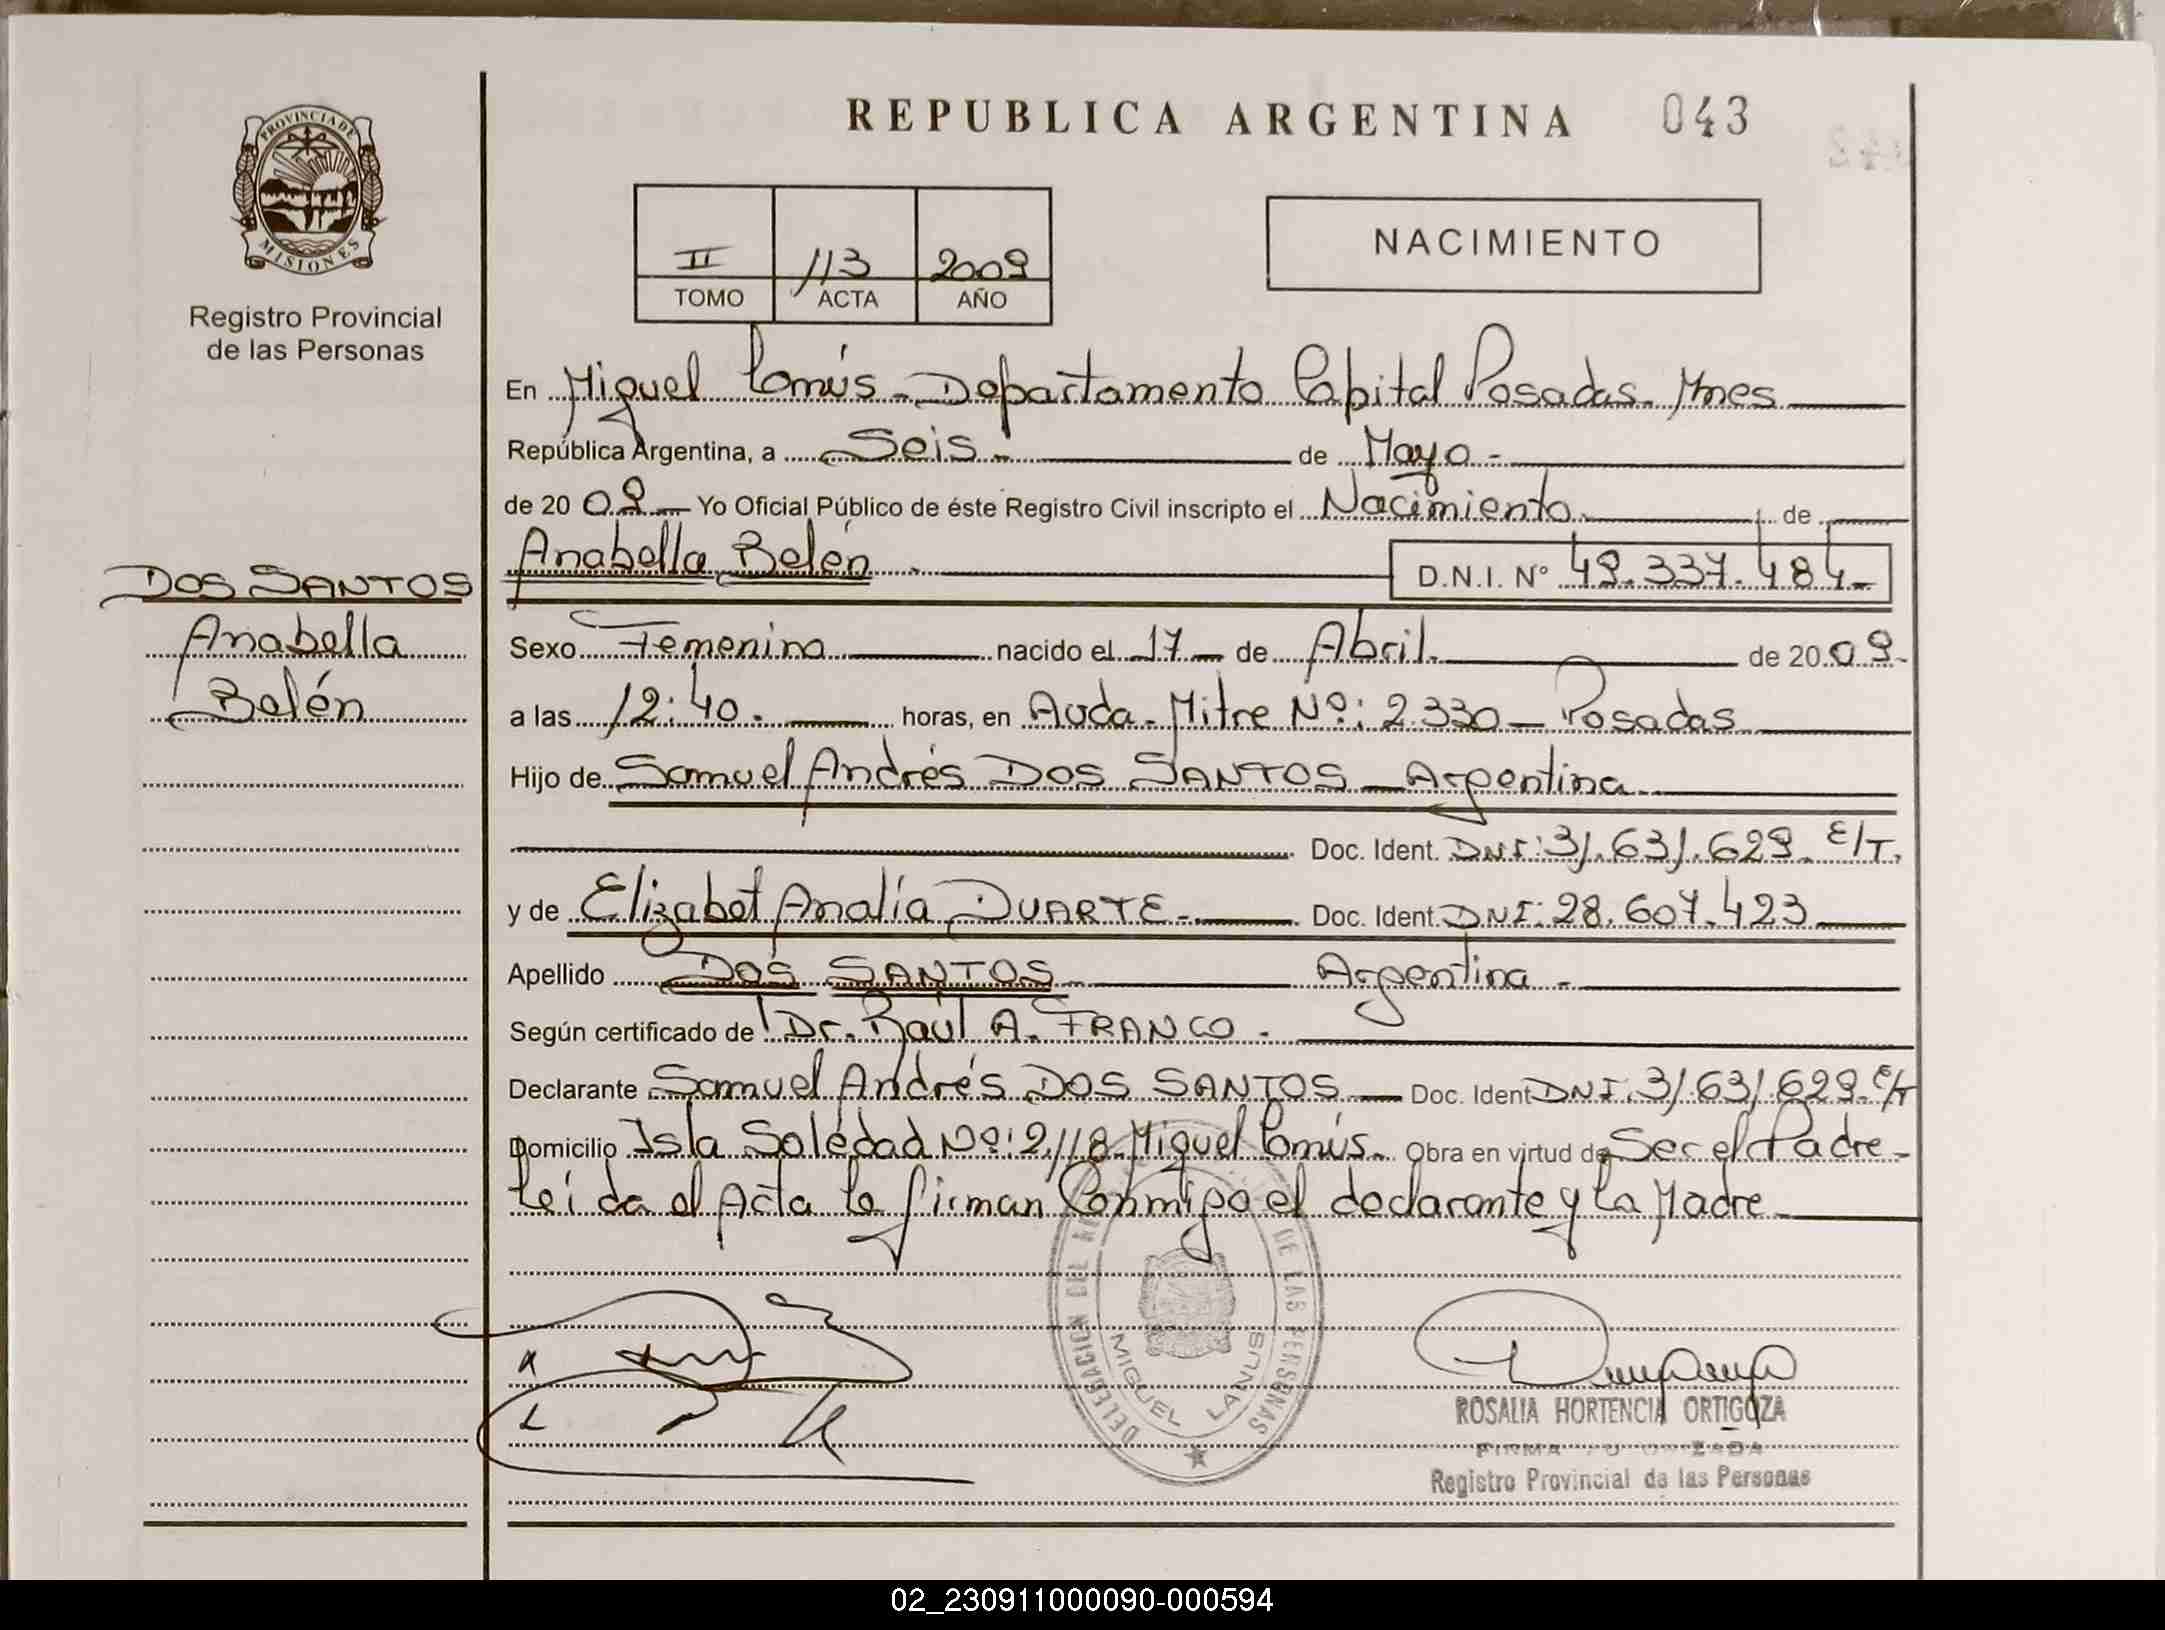 REPUBLICA ARGENTINA 043
PROVINCIA DE
MISIONES
Registro Provincial
de las Personas
II 113 2009
TOMO ACTA AÑO
NACIMIENTO
En Miguel Lanús - Departamento Capital Posadas. Mnes
República Argentina, a Seis - de Mayo -
de 20 09 - Yo Oficial Público de éste Registro Civil inscripto el Nacimiento de
Anabella Belén D.N.I. Nº 49.337.484-
DOS SANTOS
Anabella
Belén
Sexo Femenino nacido el 17 - de Abril. de 20 09-
a las 12:40. horas, en Avda. Mitre Nº: 2.330 - Posadas
Hijo de Samuel Andrés DOS SANTOS - Argentina
Doc. Ident. DNI: 31.631.629. E/T.
y de Elizabet Analía DUARTE - Doc. Ident. DNI: 28.607.423
Apellido DOS SANTOS - Argentina -
Según certificado de Dr. Raúl A. FRANCO -
Declarante Samuel Andrés DOS SANTOS - Doc. Ident DNI. 31.631.629. E/T
Domicilio Isla Soledad Nº: 2.118. Miguel Lanús. Obra en virtud de Ser el Padre -
Leída el Acta la firman Conmigo el declarante y la Madre -
DELEGACION DEL DE LAS PERSONAS
MIGUEL LANUS
ROSALIA HORTENCIA ORTIGOZA
FIRMA AUTORIZADA
Registro Provincial de las Personas
02_230911000090-000594